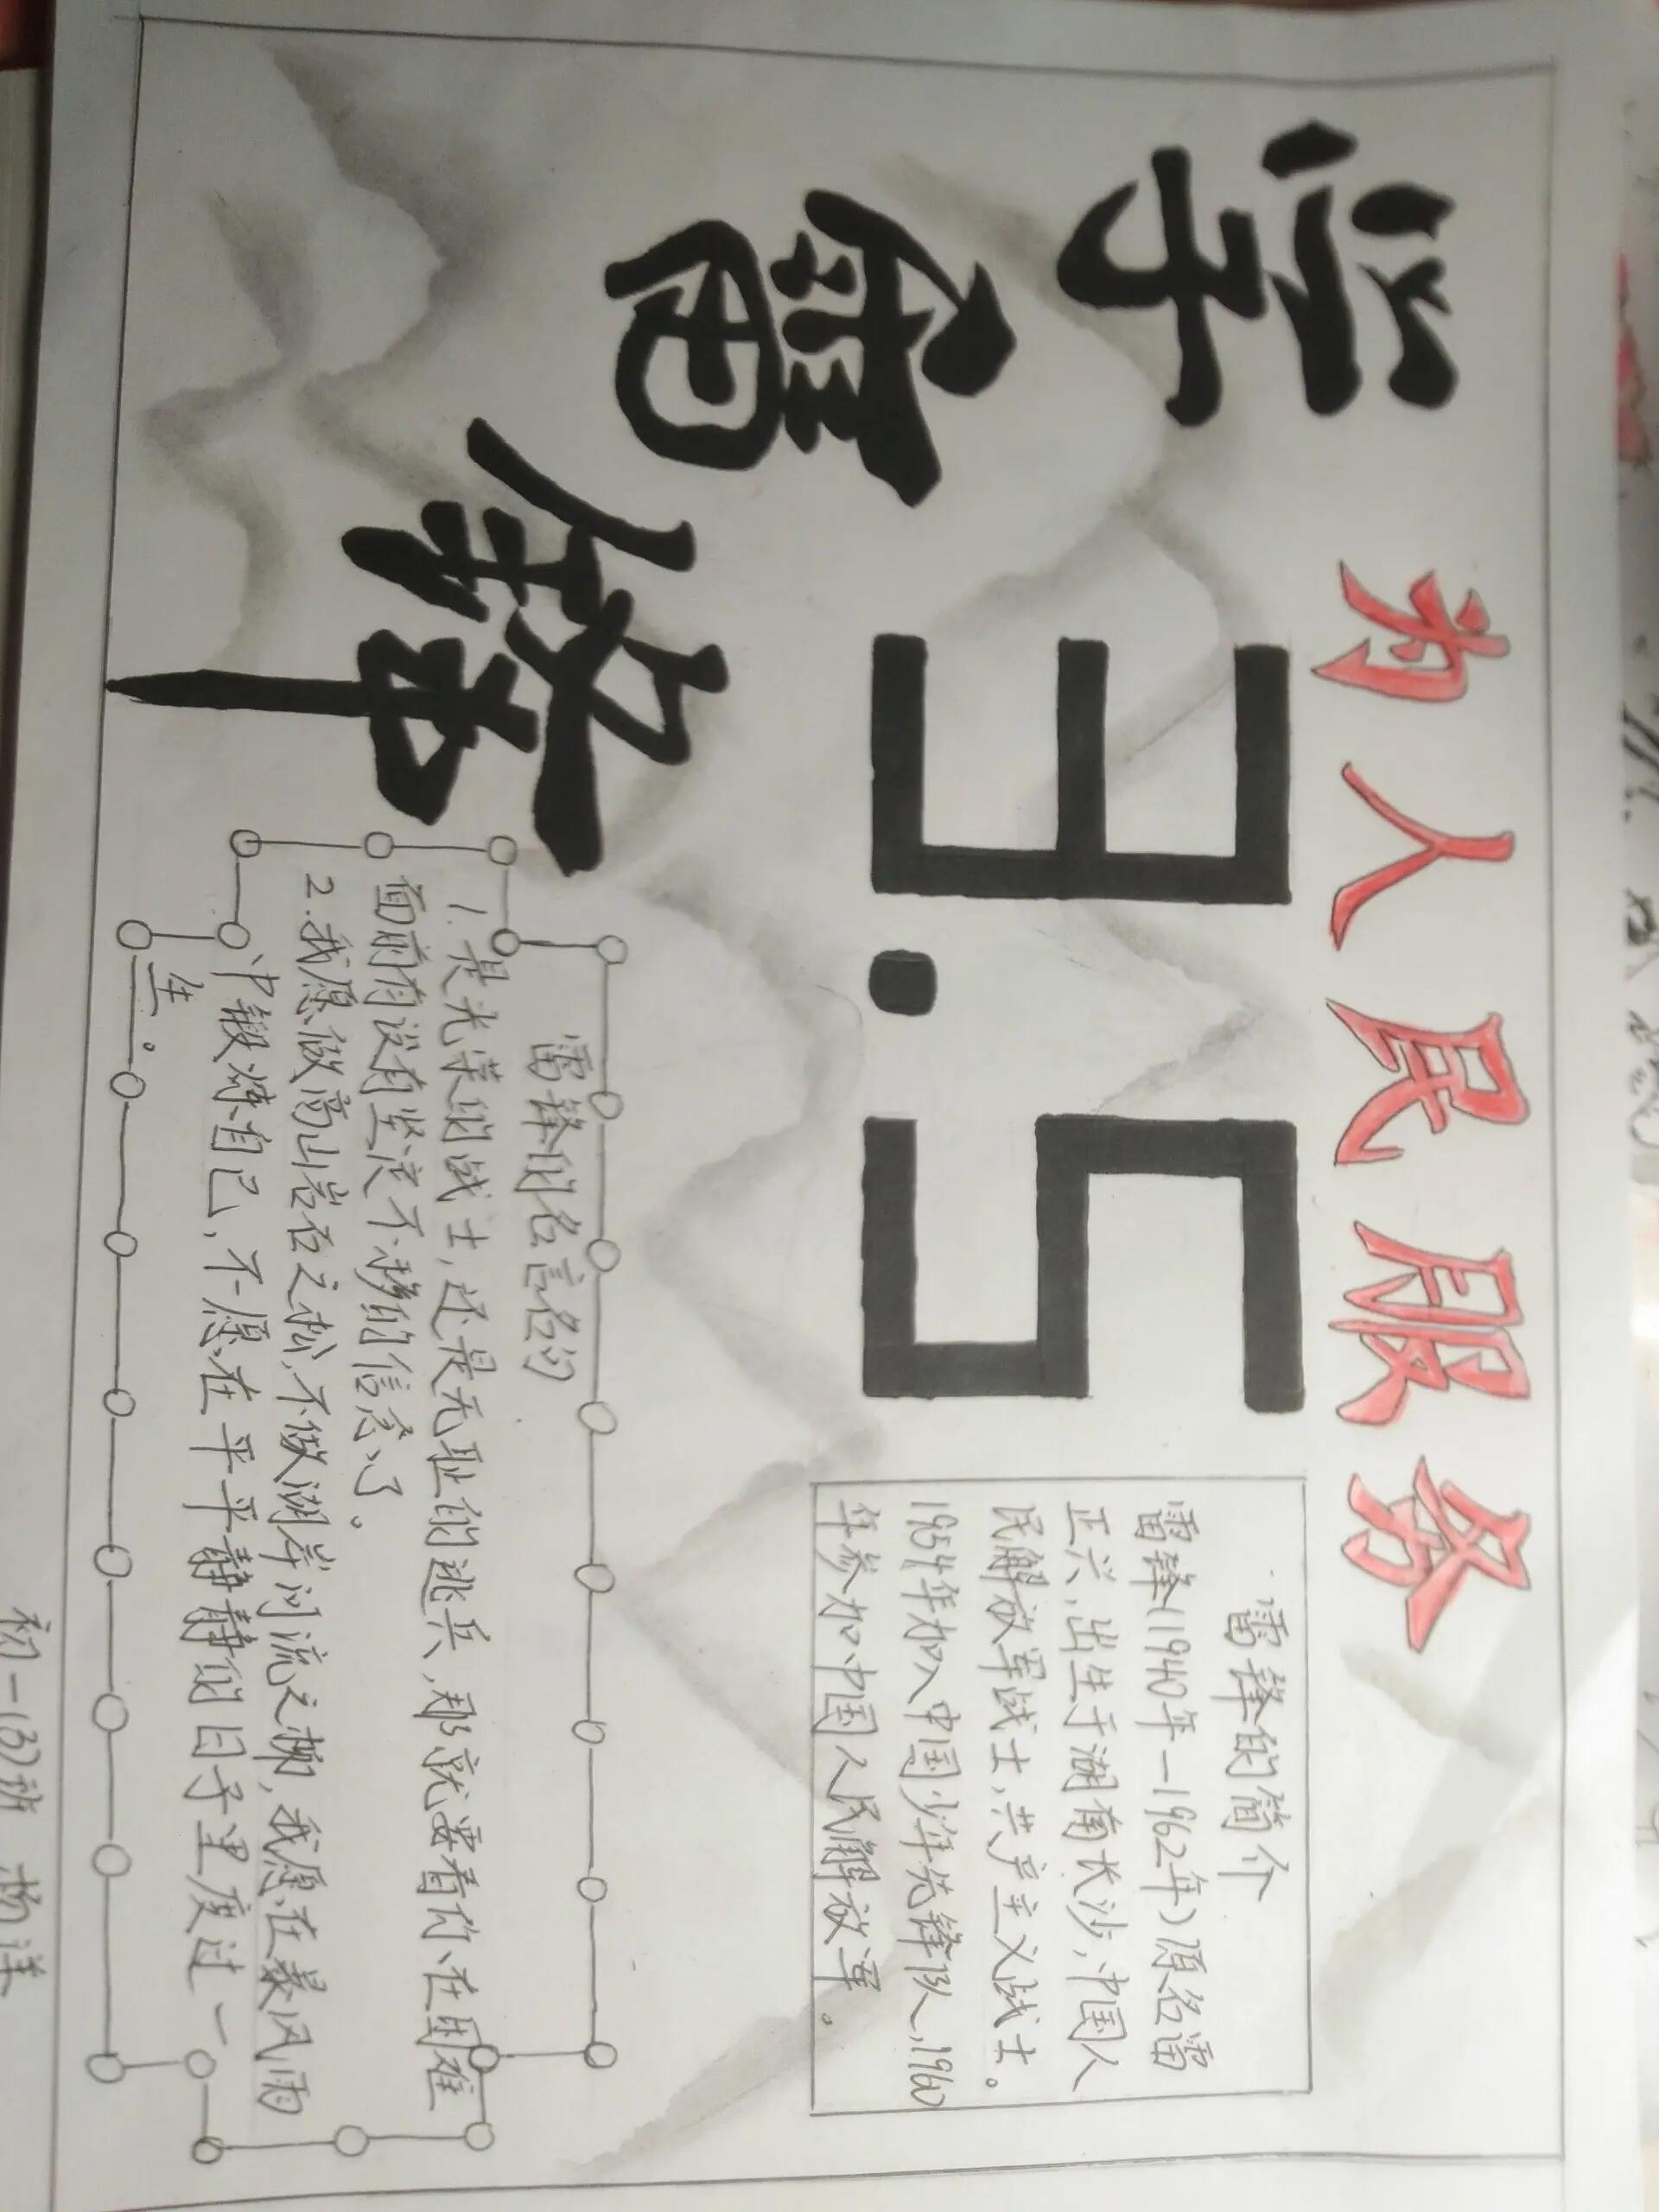 为人民服务
学雷锋
3.5
雷锋的简介
雷锋(1940年—1962年)原名雷
正兴,出生于湖南长沙,中国人
民解放军战士,共产主义战士。
1954年加入中国少年先锋队,1960
年参加中国人民解放军。
雷锋的名言名句
1.是光荣的战士,还是无耻的逃兵,那就要看你在困难
面前有没有坚决不移的信念了。
2.我愿做高山岩石之松,不做湖岸河流之柳,我愿在暴风雨
中锻炼自己,不愿在平平静静的日子里度过一
生。
初一(3)班 杨洋